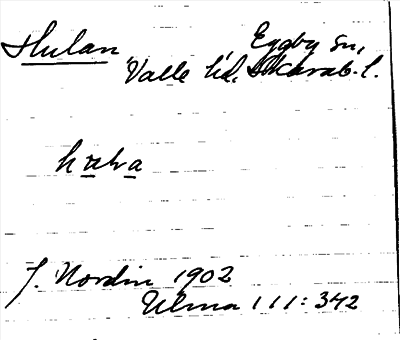 Hulan Eggby sn,
Valle hd, Skarab. l.
f. Nordin 1902
Ulma 111:342